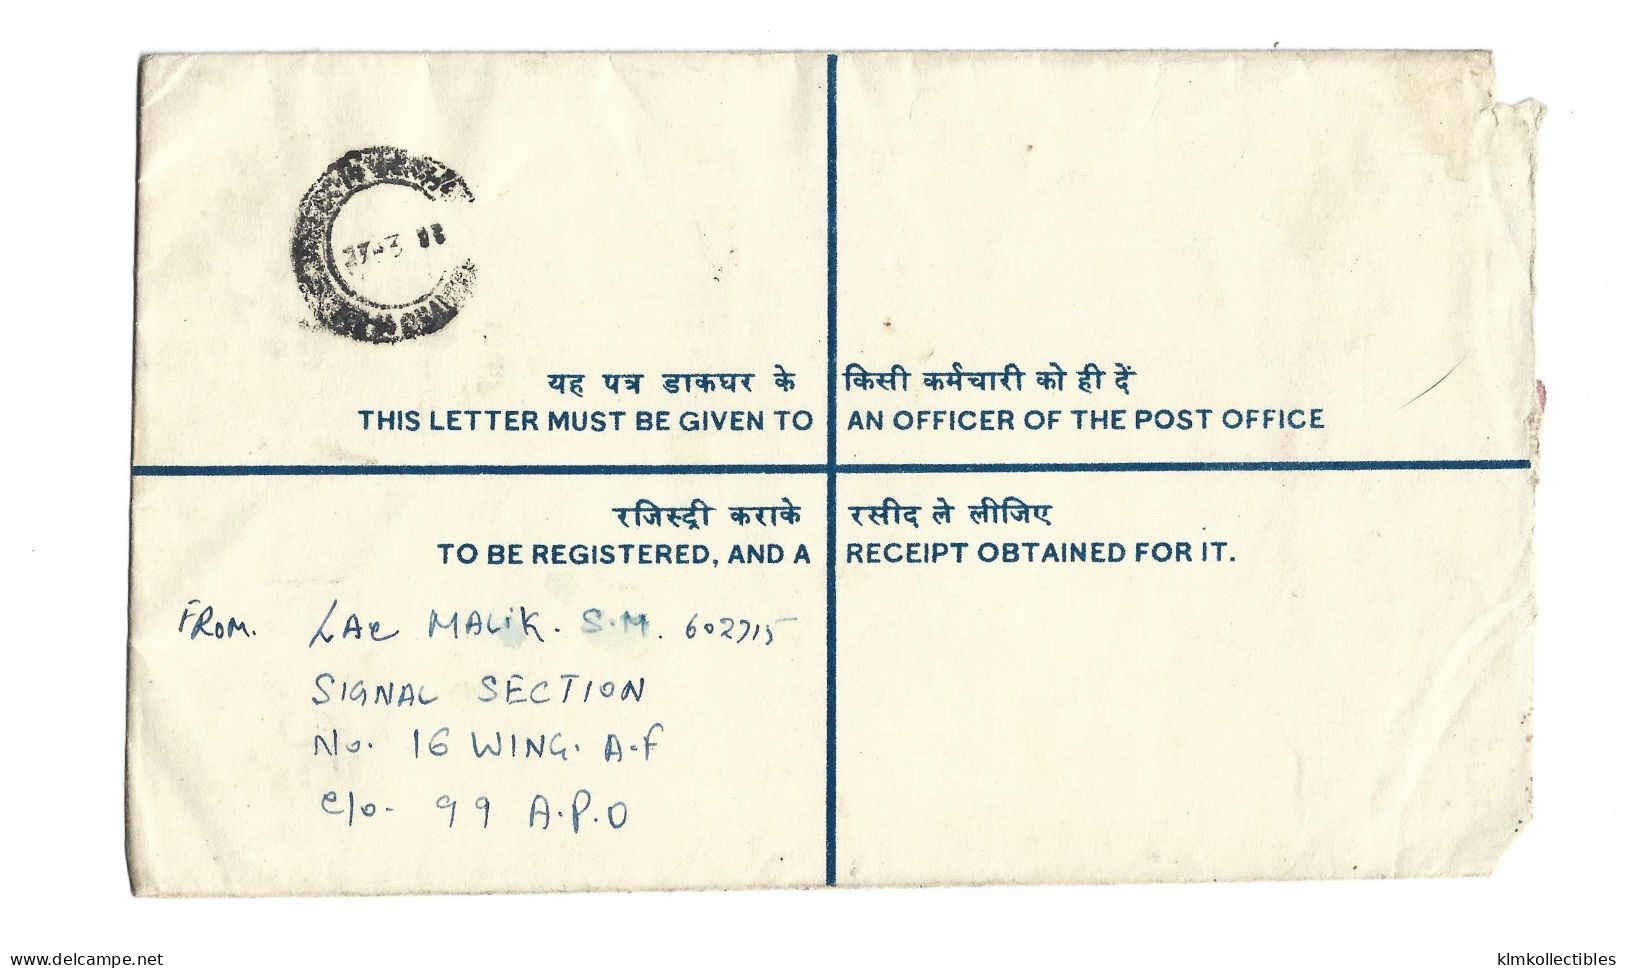 27-3 88
यह पत्र डाकघर के किसी कर्मचारी को ही दें
THIS LETTER MUST BE GIVEN TO AN OFFICER OF THE POST OFFICE
रजिस्ट्री कराके रसीद ले लीजिए
TO BE REGISTERED, AND A RECEIPT OBTAINED FOR IT.
FROM. LAC MALIK. S.M. 602715
SIGNAL SECTION
No. 16 WING. A.F
c/o- 99 A.P.O
delcampe.net
klmkollectibles